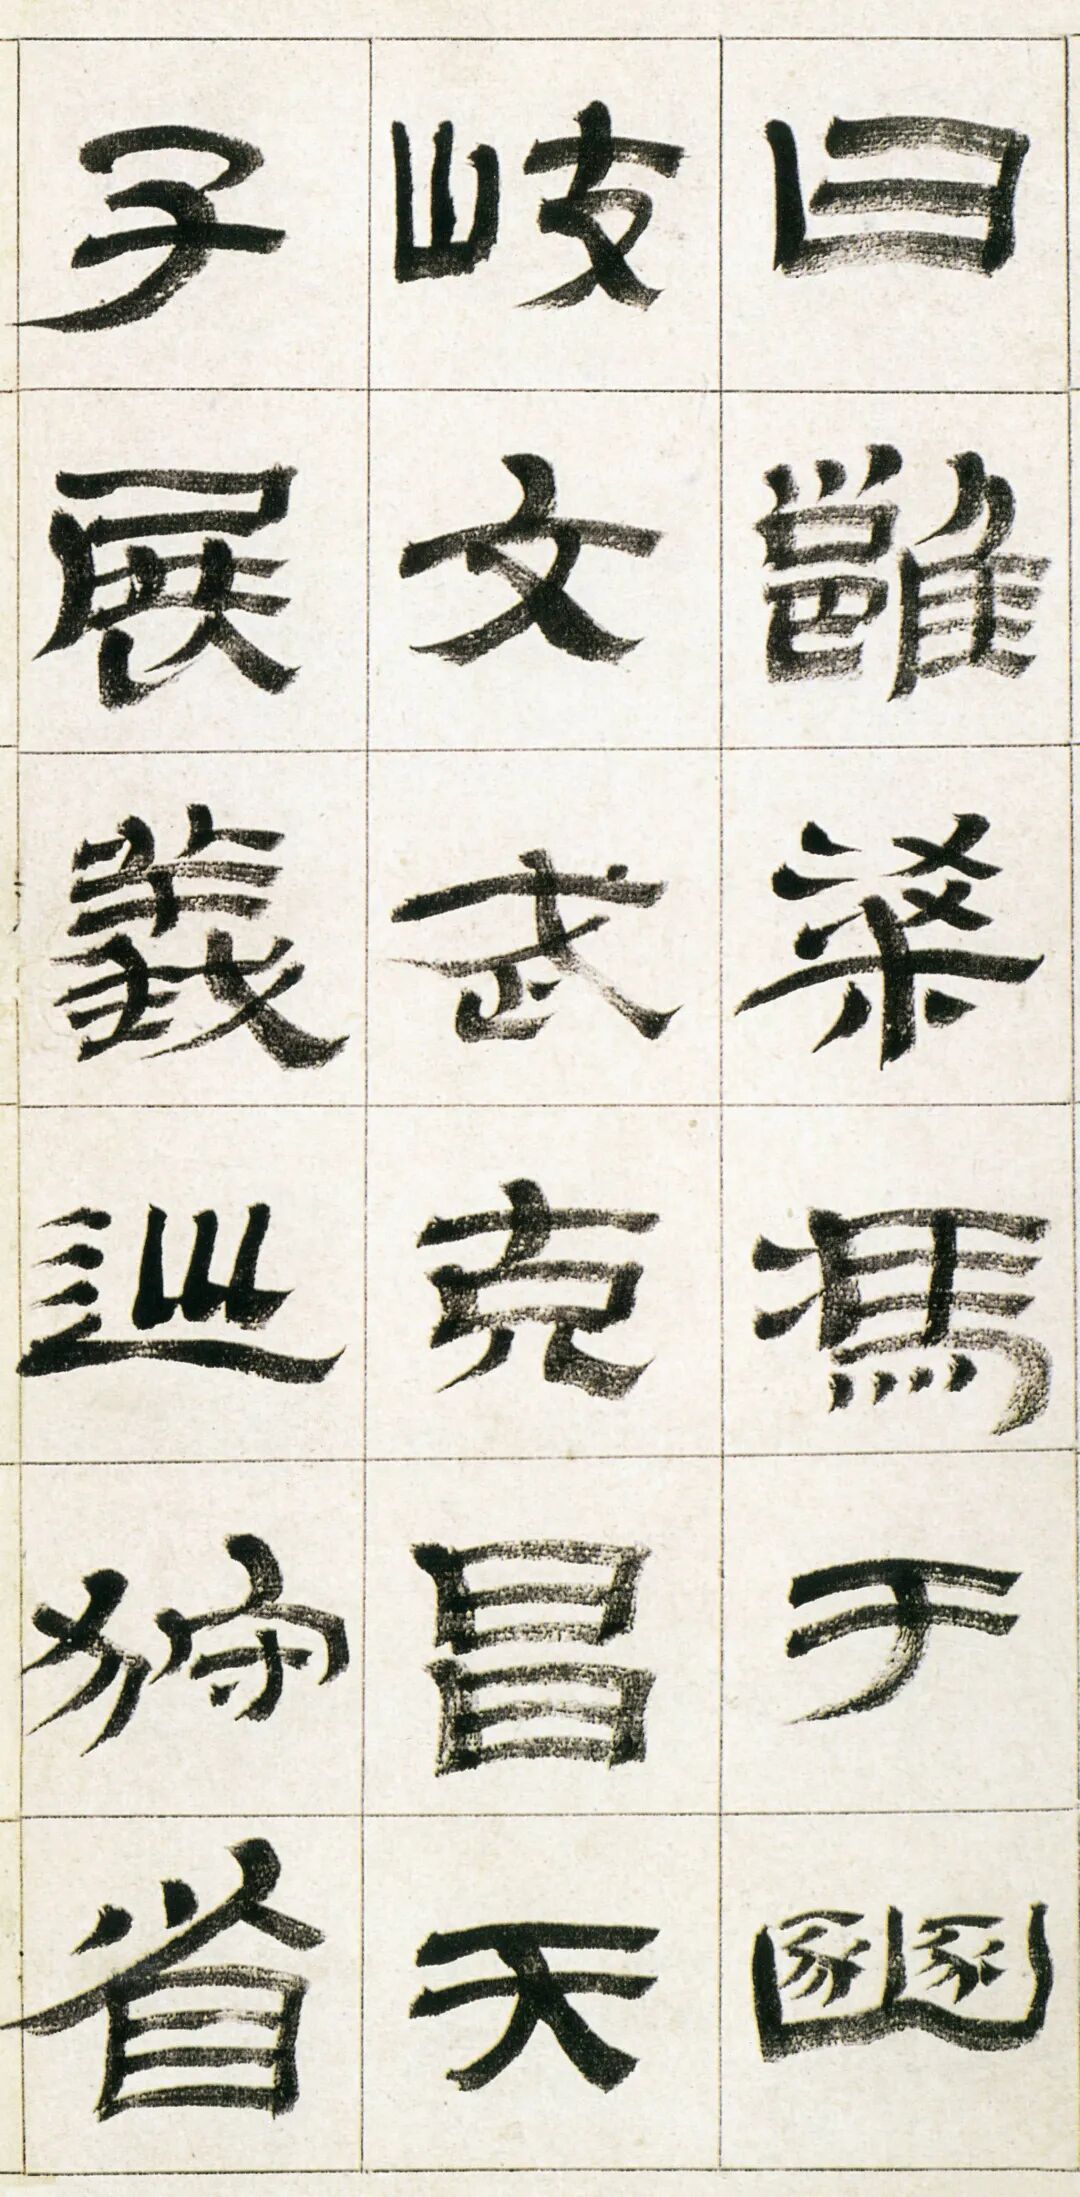 曰雝梁馮于豳
岐文武克昌天
子展義巡狩省